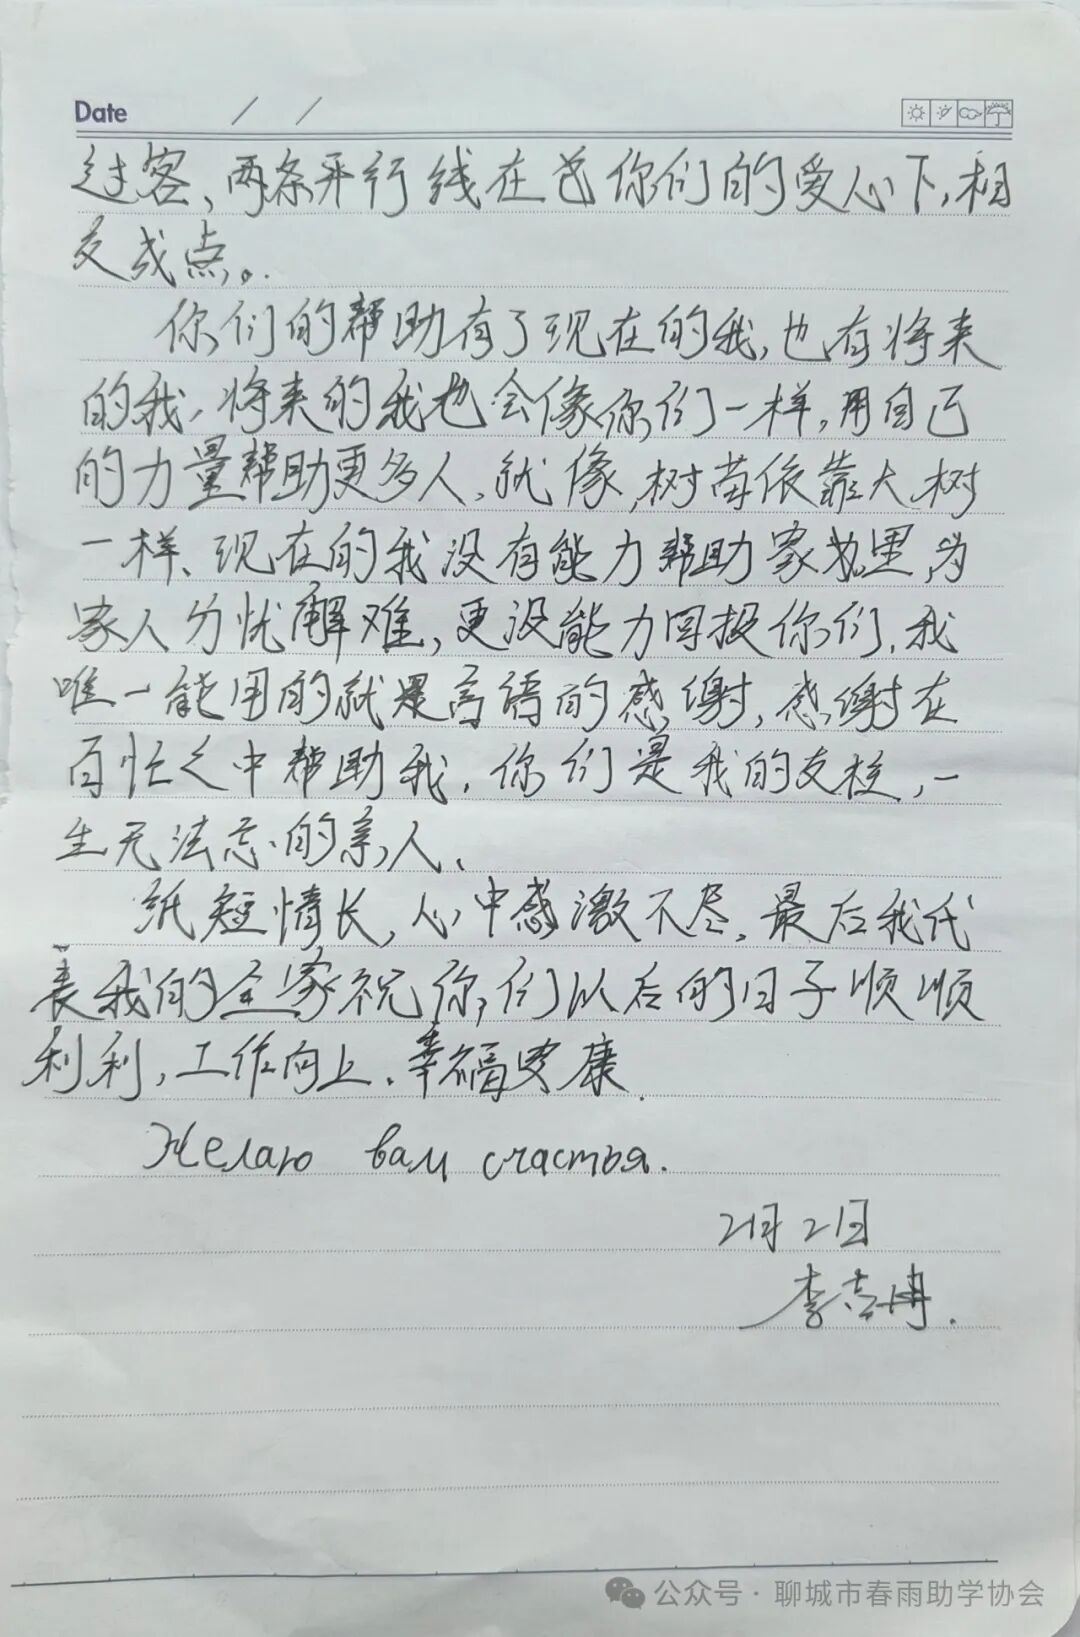 Date / /
过客、两条平行线在你们的爱心下,相
交成点。
你们的帮助有了现在的我,也有将来
的我,将来的我也会像你们一样,用自己
的力量帮助更多人、就像,树苗依靠大树
一样、现在的我没有能力帮助家里,为
家人分忧解难,更没能力回报你们,我
唯一能用的就是言语的感谢,感谢在
百忙之中帮助我,你们是我的支柱,一
生无法忘的亲人、
纸短情长,心中感激不尽,最后我代
表我的全家祝你们以后的日子顺顺
利利,工作向上、幸福安康.
Желаю вам счастья.
2月2日
李吉冉.
公众号·聊城市春雨助学协会